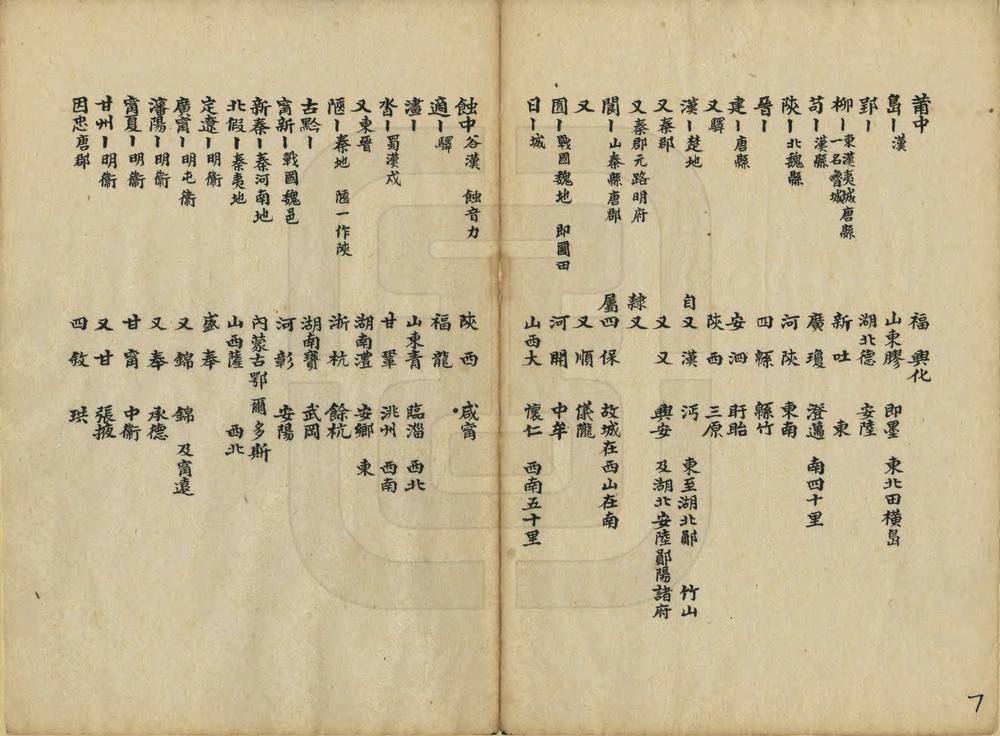 莆中 福 興化
島〡漢 山東膠 即墨 東北田橫島
郢〡 湖北德 安陸
柳〡東漢夷城唐縣 一名魯城 新 吐 東
苟〡漢縣 廣 瓊 澄邁 南四十里
陝〡北魏縣 河 陝 東南
晉〡 四 緜 緜竹
建〡唐縣 安 泗 盱眙
又〡驛 陝 西 三原
漢〡楚地 自又 漢 沔 東至湖北鄖 竹山
又〡秦郡 又 又 興安 及湖北安陸鄖陽諸府
又〡秦郡元路明府 隸又
閬〡山秦縣唐郡 屬四 保 故城在西山在南
又 又 順 儀隴
圃〡戰國魏地 即圃田 河 開 中牟
日〡城 山西大 懷仁 西南五十里
蝕中谷漢 蝕音力 陝 西 咸甯
適〡驛 福 龍
澅〡 山東青 臨淄 西北
沓〡蜀漢戍 甘 鞏 洮州 西南
又〡東晉 湖南澧 安鄉 東
陿〡秦地 陿一作陝 浙 杭 餘杭
古黔〡 湖南寶 武岡
甯新〡戰國魏邑 河 彰 安陽
新秦〡秦河南地 內蒙古鄂爾多斯
北假〡秦夷地 山西薩 西北
定遼〡明衞 盛 奉
廣甯〡明屯衞 又 錦 錦 及甯遠
瀋陽〡明衞 又 奉 承德
甯夏〡明衞 甘 甯 中衞
甘州〡明衞 又 甘 張掖
因忠唐郡 四 敘 珙
7